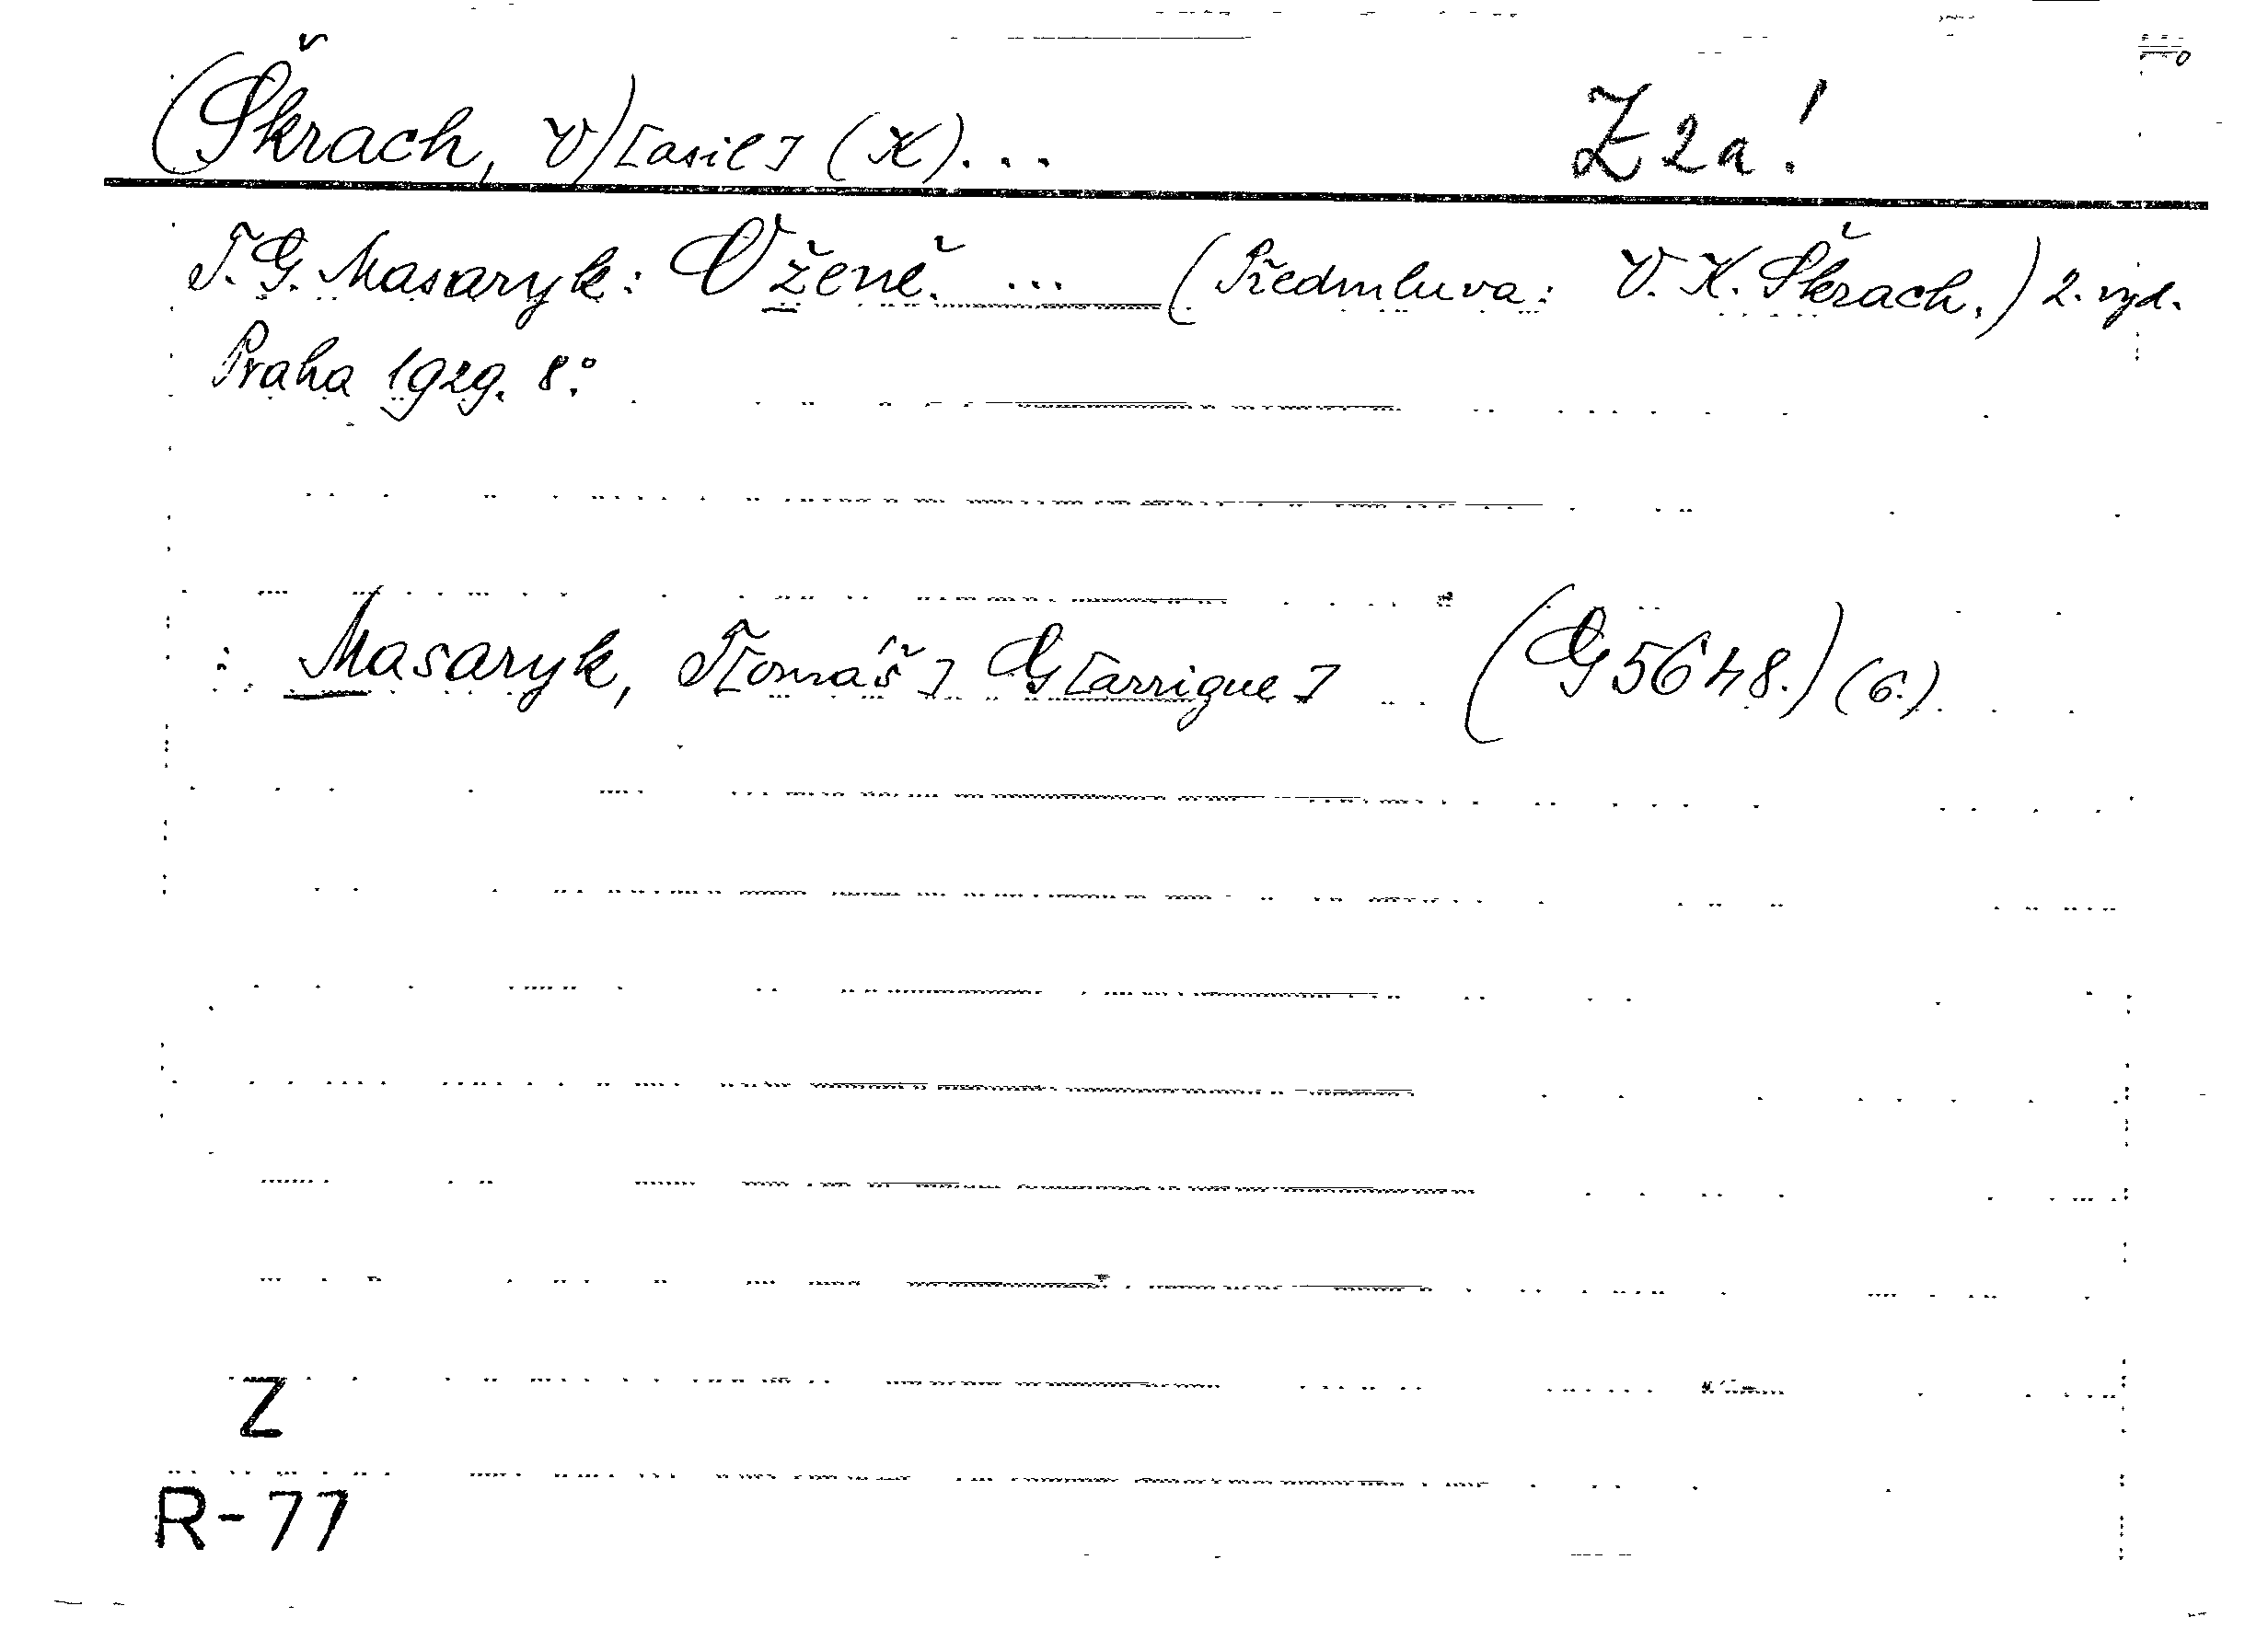 (Škrach, V)[asil] (K)... Z 2a!
T. G. Masaryk: O ženě. ... (Předmluva: V. K. Škrach.) 2. vyd.
Praha 1929. 8°.
: Masaryk, T[omáš] G[arrigue] (G 5648.) (6.)
Z
R-77